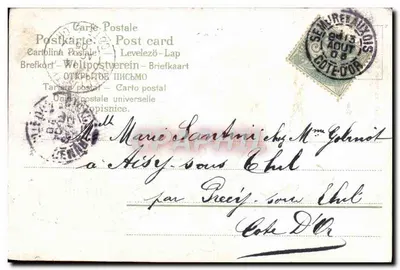 Carte Postale
Postkarte Post card
Cartolina Postale Levelező-Lap
Brefkort Weltpostverein Briefkaart
ОТКРЫТОЕ ПИСЬМО
Tarjeta postal Carto postal
postale universelle
Dopisnice.
SEMUR EN AUXOIS
13
AOUT
COTE-D'OR
Melle Marie chez Mme
à Aisy-sous Thil
par Précy-sous Thil
Cote D'Or